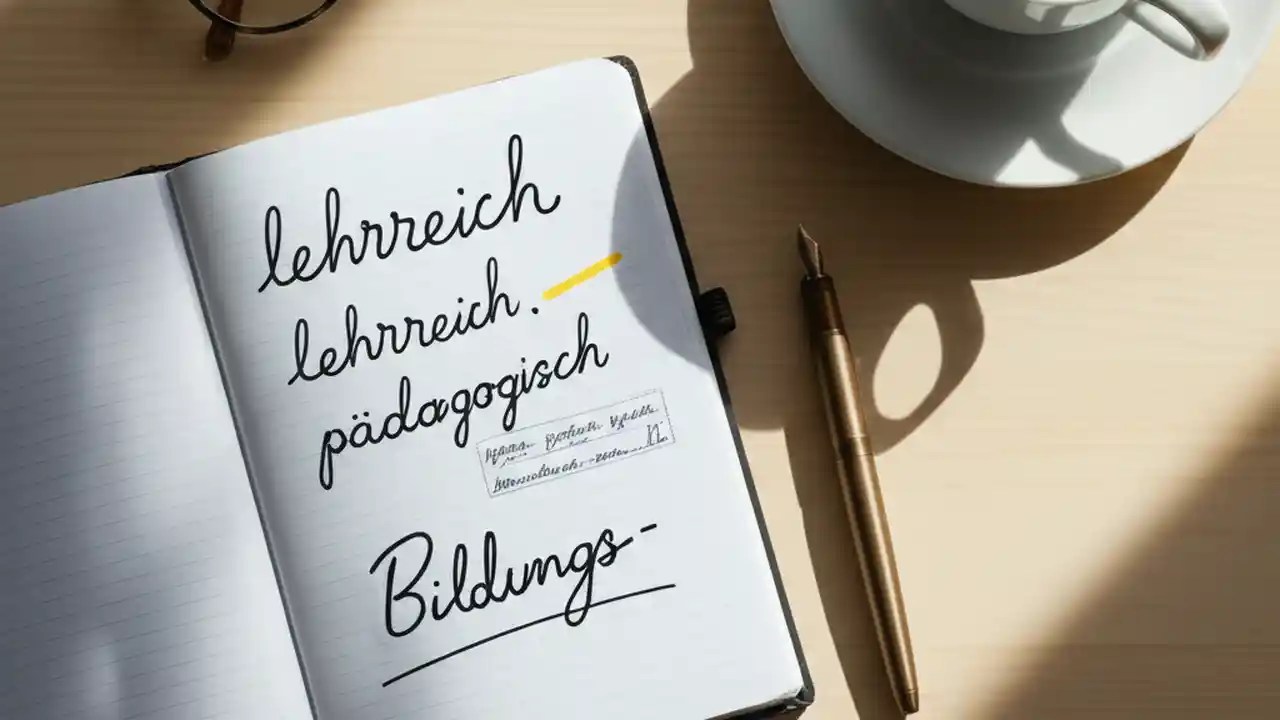 lehrreich
lehrreich.
pädagogisch
Bildungs-